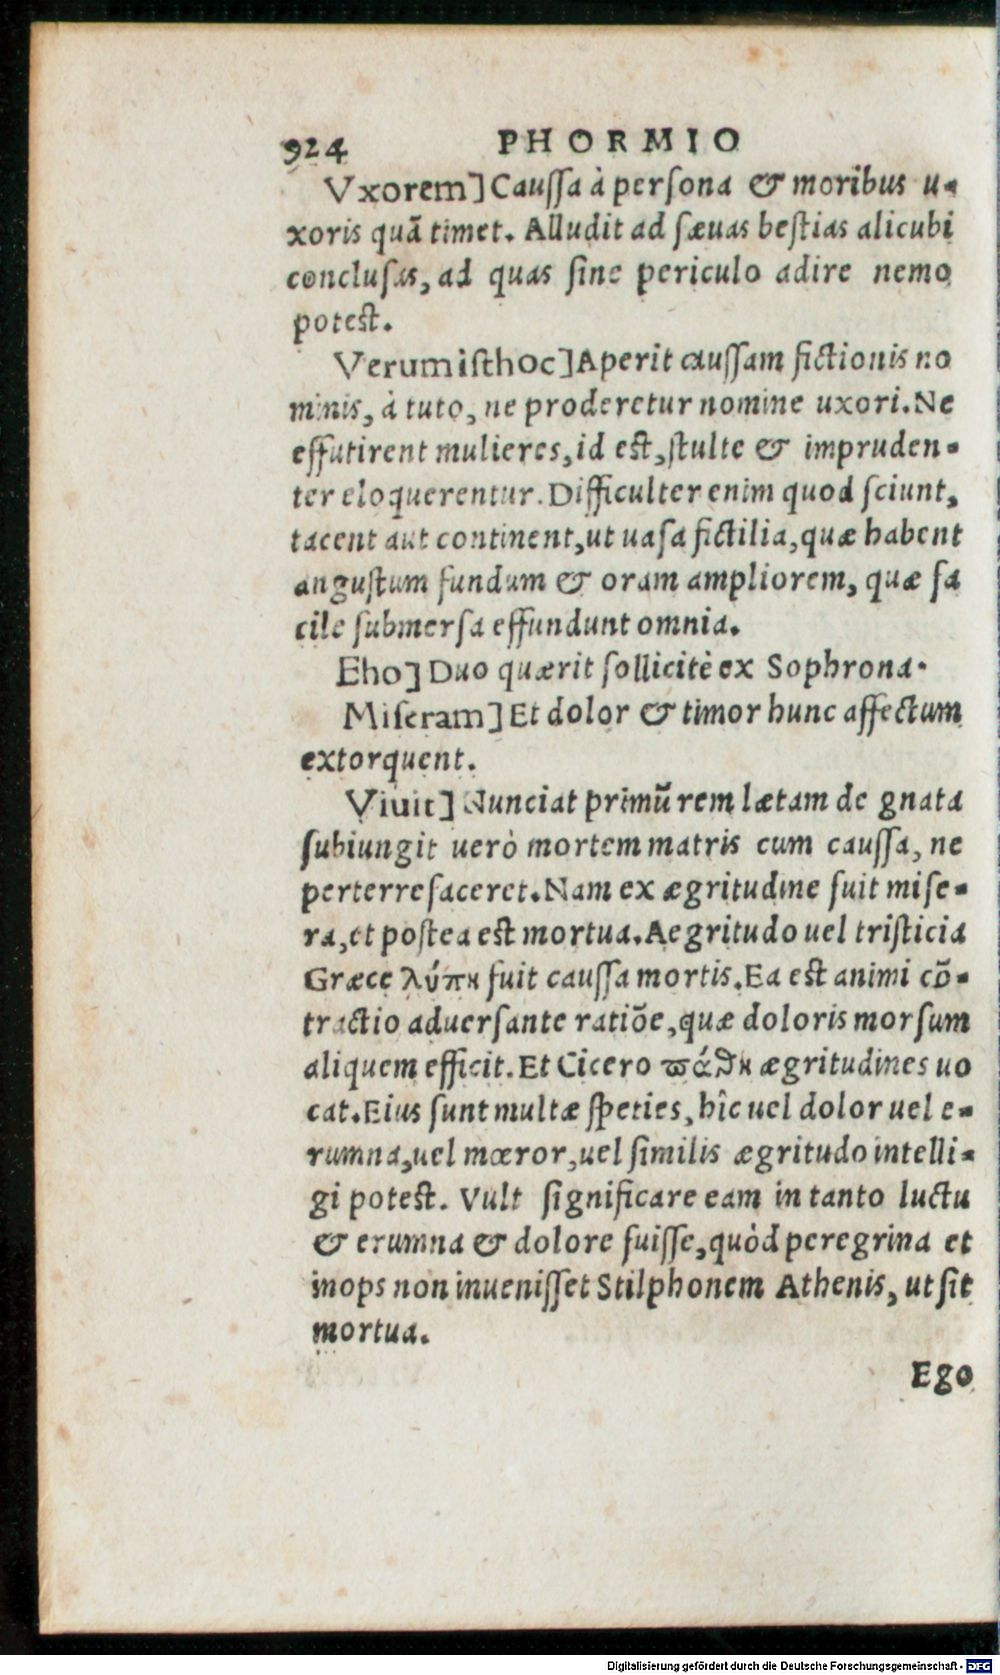 924 PHORMIO
Vxorem] Cauſſa à perſona & moribus u-
xoris quã timet. Alludit ad ſæuas beſtias alicubi
concluſas, ad quas ſine periculo adire nemo
poteſt.
Verum iſthoc] Aperit cauſſam fictionis no
minis, à tuto, ne proderetur nomine uxori. Ne
effutirent mulieres, id eſt, ſtulte & impruden-
ter eloquerentur. Difficulter enim quod ſciunt,
tacent aut continent, ut uaſa fictilia, quæ habent
anguſtum fundum & oram ampliorem, quæ fa
cile ſubmerſa effundunt omnia.
Eho] Duo quærit ſollicitè ex Sophrona.
Miſeram] Et dolor & timor hunc affectum
extorquent.
Viuit] Nunciat primũ rem lætam de gnata
ſubiungit uerò mortem matris cum cauſſa, ne
perterrefaceret. Nam ex ægritudine fuit miſe-
ra, et poſtea eſt mortua. Aegritudo uel triſticia
Græce λύπη fuit cauſſa mortis. Ea eſt animi cõ-
tractio aduerſante ratiõe, quæ doloris morſum
aliquem efficit. Et Cicero ϖάθη ægritudines uo
cat. Eius ſunt multæ ſpeties, hîc uel dolor uel e-
rumna, uel mœror, uel ſimilis ægritudo intelli-
gi poteſt. Vult ſignificare eam in tanto luctu
& erumna & dolore fuiſſe, quòd peregrina et
inops non inueniſſet Stilphonem Athenis, ut ſit
mortua.
Ego
Digitalisierung gefördert durch die Deutsche Forschungsgemeinschaft - DFG